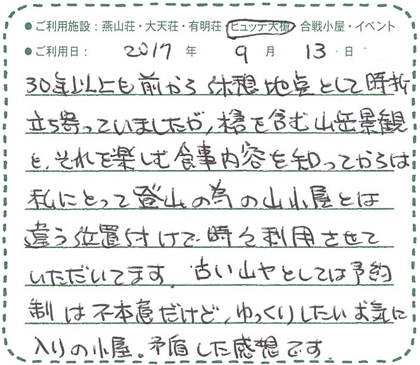 ●ご利用施設：燕山荘・大天荘・有明荘 ヒュッテ大槍 合戦小屋・イベント
●ご利用日： 2017 年 9 月 13 日
30年以上も前から休憩地点として時折
立ち寄っていましたが、槍を含む山岳景観
と、それを楽しむ食事内容を知ってからは
私にとって登山の為の山小屋とは
違う位置付けで時々利用させて
いただいてます。古い山ヤとしては予約
制は不本意だけど、ゆっくりしたいお気に
入りの小屋。矛盾した感想です。